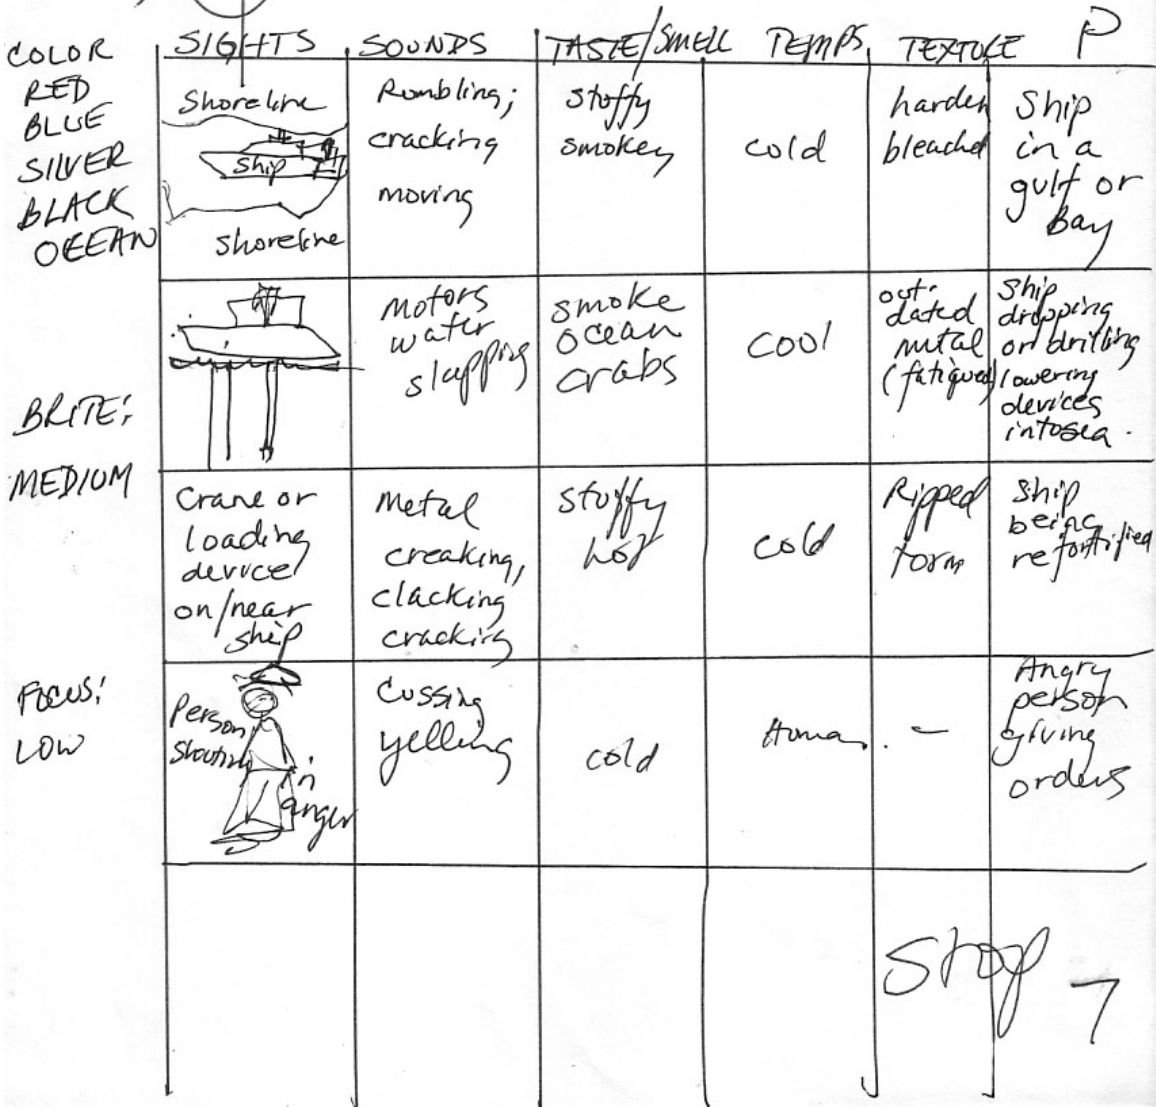 COLOR SIGHTS SOUNDS TASTE/SMELL TEMPS TEXTURE P
RED
BLUE
SILVER
BLACK
OCEAN
BRITE:
MEDIUM
FOCUS:
LOW
Shoreline
Ship
shoreline
Rumbling;
cracking
moving
stuffy
smokey
cold
harden
bleached
Ship
in a
gulf or
Bay
motors
water
slapping
smoke
ocean
crabs
cool
out-
dated
metal
(fatigued)
ship
dropping
or drilling
lowering
devices
into sea.
Crane or
loading
device
on/near
ship
metal
creaking,
clacking
cracking
stuffy
hot
cold
Ripped
torn
Ship
being
refortified
Person
shouting
in
anger
Cussing
yelling
cold
Human.
-
Angry
person
giving
orders
Stop 7